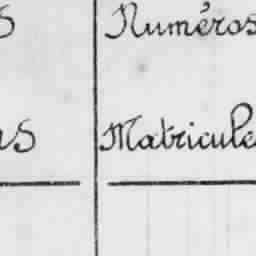 Numéros
Matricule